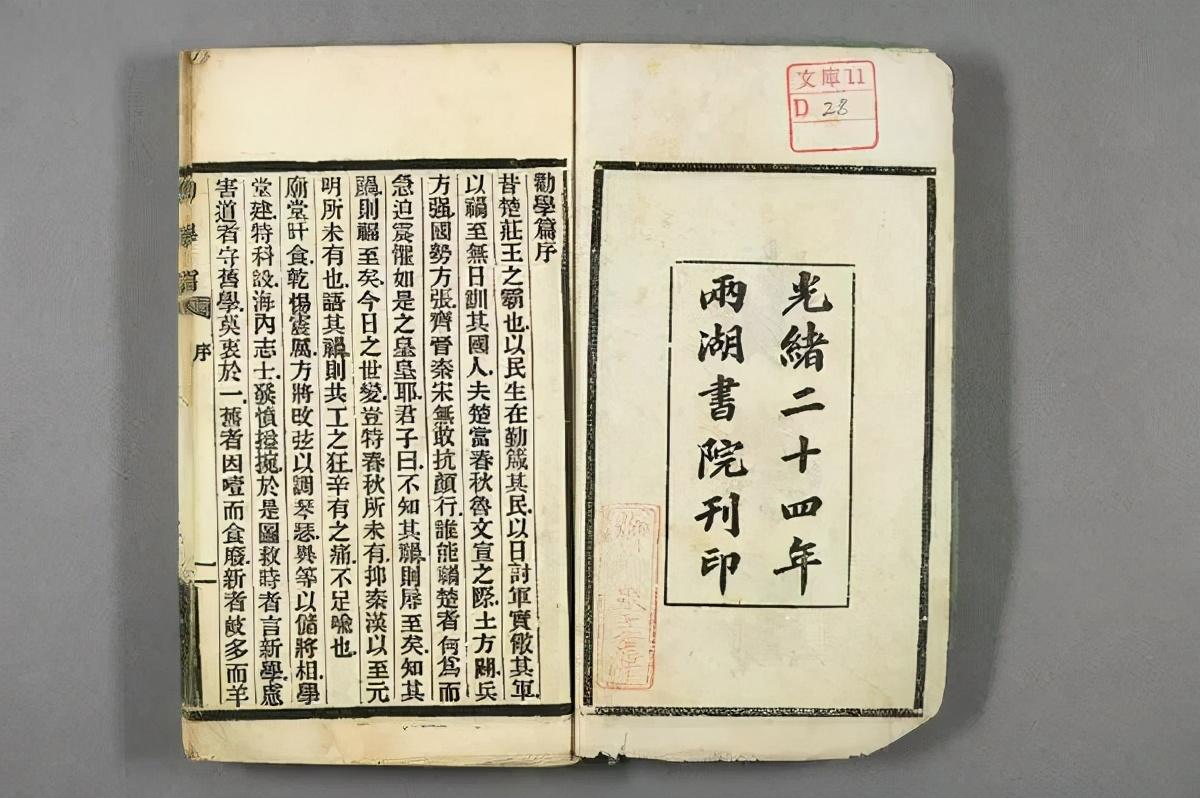 文庫11
D 28
光緒二十四年
兩湖書院刊印
勸學篇序
昔楚莊王之霸也以民生在勤箴其民以日討軍實儆其軍
以禍至無日訓其國人夫楚當春秋魯文宣之際土方闢兵
方强國勢方張齊晉秦宋無敢抗顏行誰能禍楚者何爲而
急迫震懼如是之皇皇耶君子曰不知其禍則辱至矣知其
禍則福至矣今日之世變豈特春秋所未有抑秦漢以至元
明所未有也語其禍則共工之狂辛有之痛不足喻也
廟堂旰食乾惕震厲方將改弦以調琴瑟異等以儲將相學
堂建特科設海內志士發憤搤捥於是圖救時者言新學慮
害道者守舊學莫衷於一舊者因噎而食廢新者歧多而羊
勸學篇
序
一